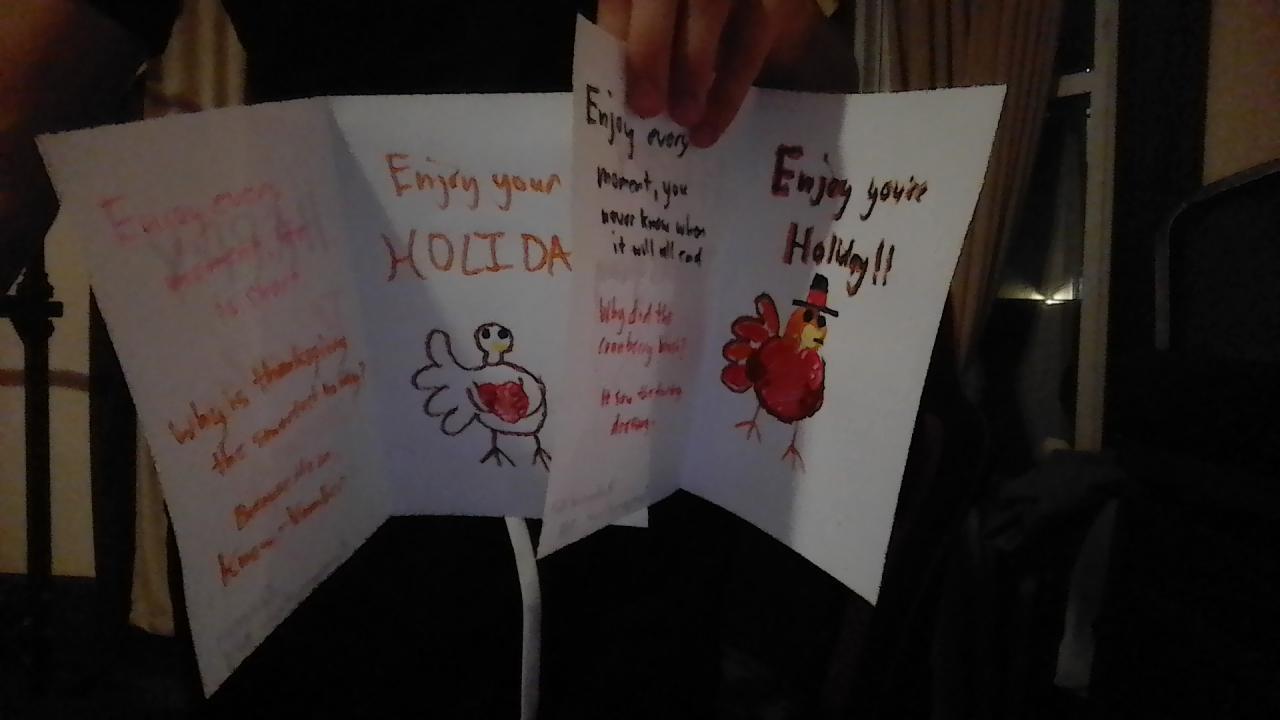 Enjoy every
moment, fall
is short
Why is thanksgiving
the
to
Because
know
Enjoy your
HOLIDA
Enjoy every
moment, you
never know when
it will all end
Why did the
Cranberry blush?
It saw the turkey
dressing.
Enjoy you're
Holiday!!